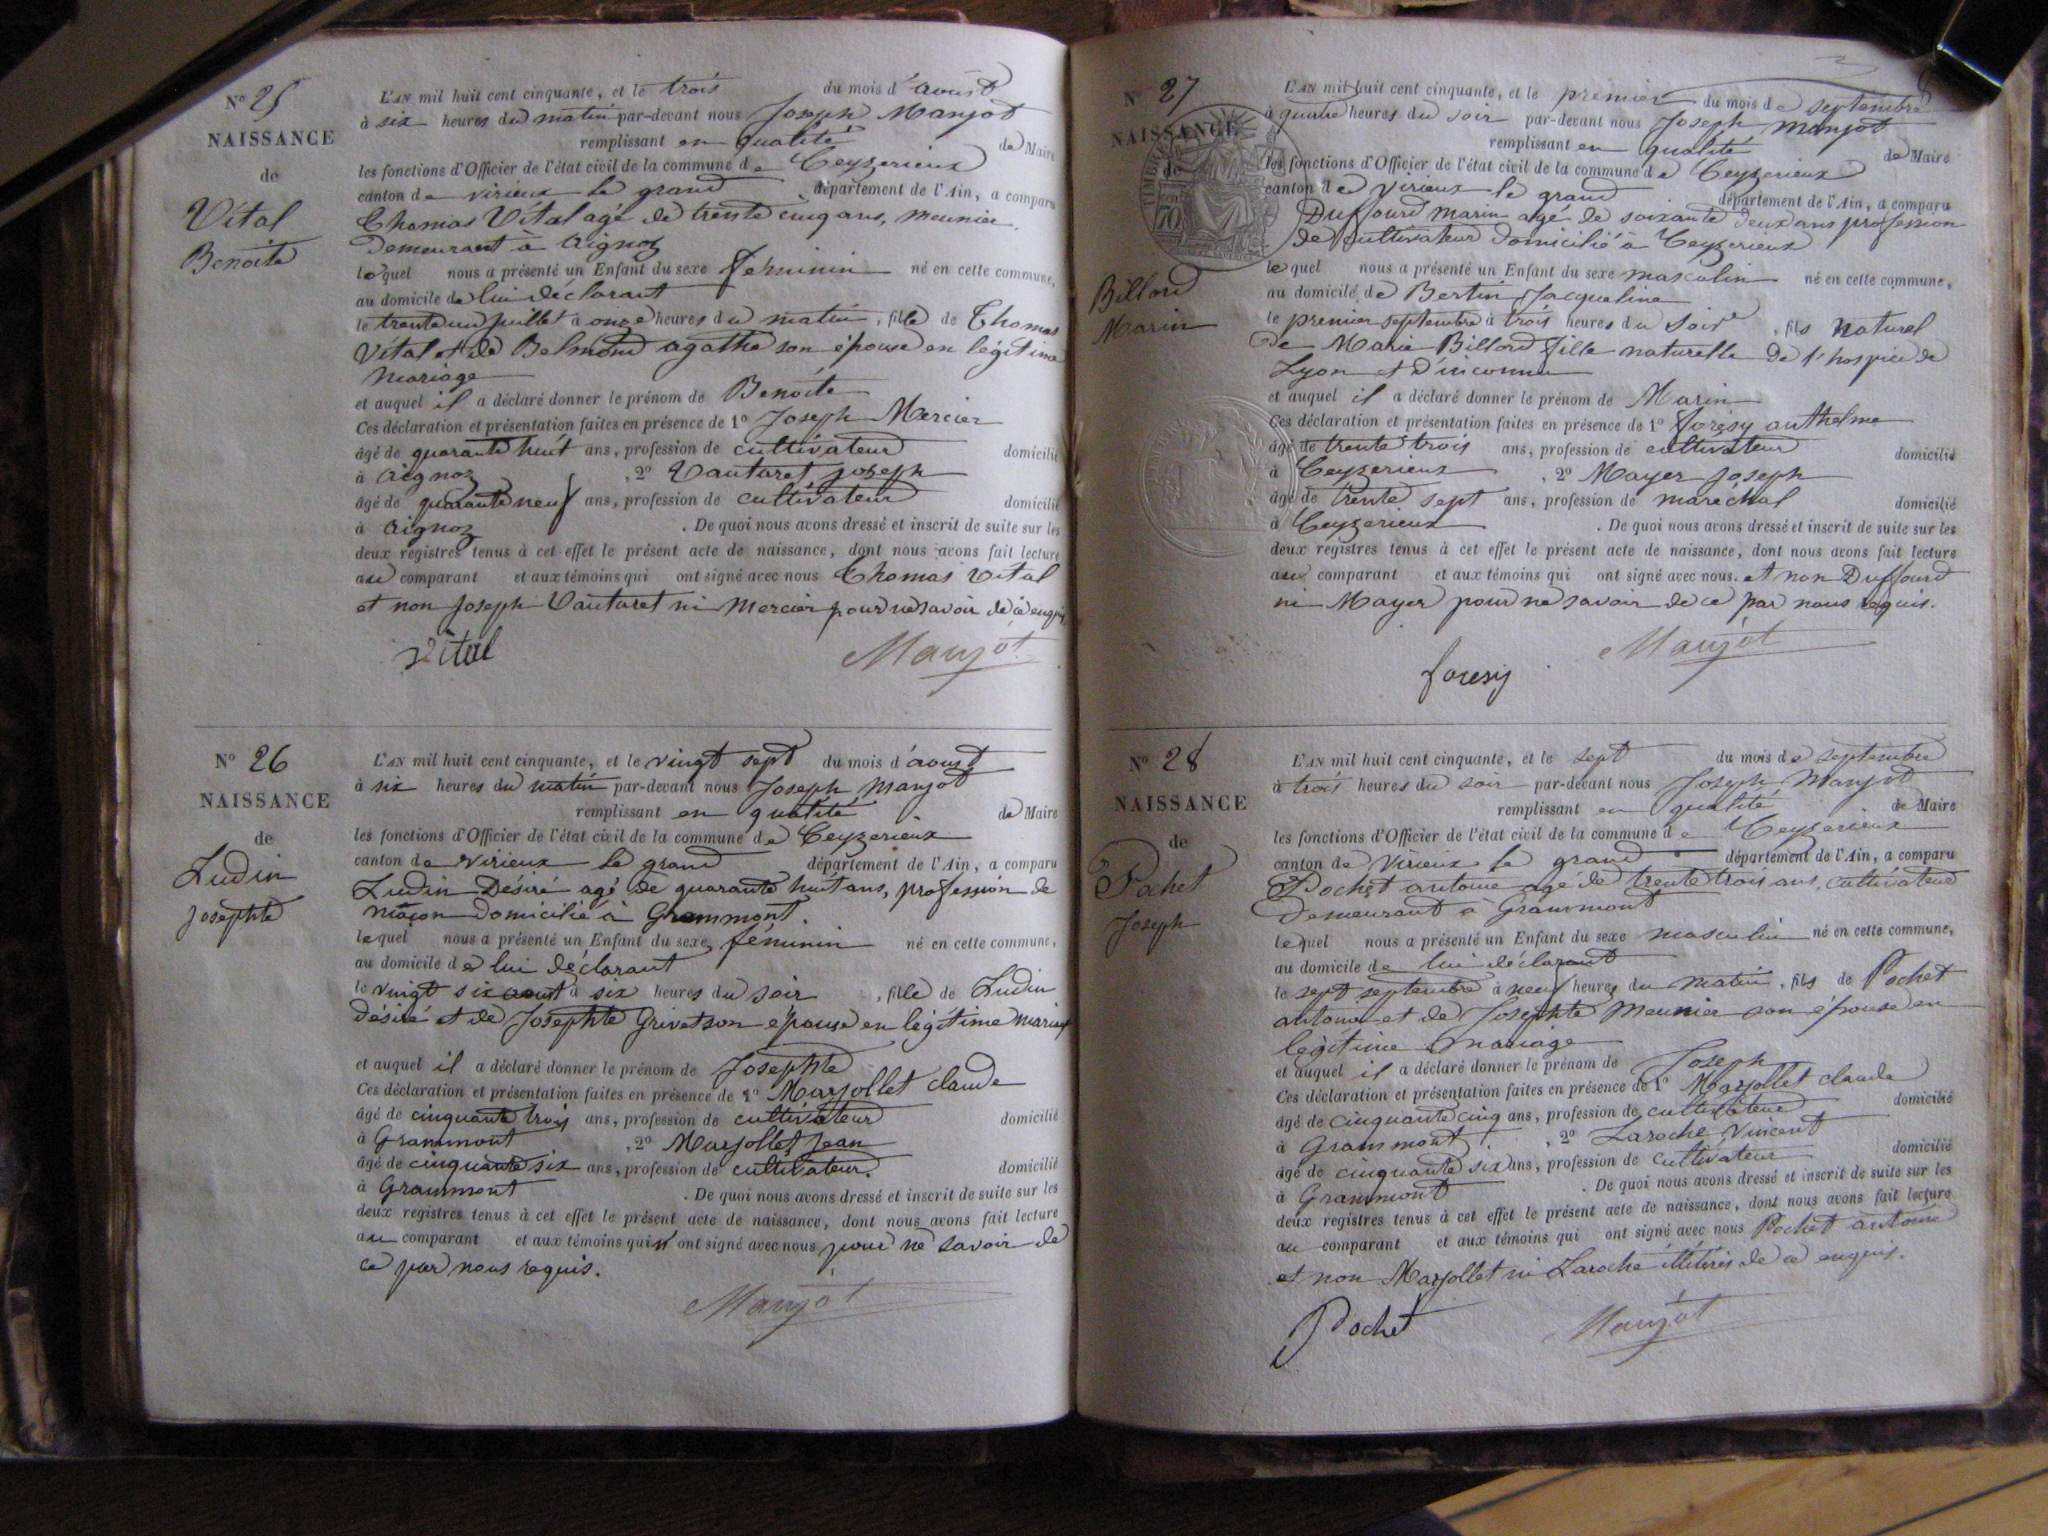 N° 25
NAISSANCE
de
Vital
Benoite
L'AN mil huit cent cinquante, et le trois du mois d'aoust
à six heures du matin par-devant nous Joseph Manjot
remplissant en qualité de Maire
les fonctions d'Officier de l'état civil de la commune de Ceyzerieux
canton de virieux le grand département de l'Ain, a comparu
Thomas Vital agé de trente cinq ans, meunier,
demeurant à Aignoz
lequel nous a présenté un Enfant du sexe féminin né en cette commune,
au domicile de lui déclarant
le trente un juillet à onze heures du matin, fille de Thomas
Vital et de Belmond agathe son épouse en légitime
mariage
et auquel il a déclaré donner le prénom de Benoite
Ces déclaration et présentation faites en présence de 1° Joseph Mercier
âgé de quarante huit ans, profession de cultivateur domicilié
à Aignoz , 2° Vautaret joseph
âgé de quarante neuf ans, profession de cultivateur domicilié
à Aignoz . De quoi nous avons dressé et inscrit de suite sur les
deux registres tenus à cet effet le présent acte de naissance, dont nous avons fait lecture
au comparant et aux témoins qui ont signé avec nous Thomas Vital
et non Joseph Vautaret ni Mercier pour ne savoir de ce enquis
Vital Manjot
N° 26
NAISSANCE
de
Ludin
Josephte
L'AN mil huit cent cinquante, et le vingt sept du mois d'aoust
à six heures du matin par-devant nous Joseph Manjot
remplissant en qualité de Maire
les fonctions d'Officier de l'état civil de la commune de Ceyzerieux
canton de virieux le grand département de l'Ain, a comparu
Ludin Désiré agé de quarante huit ans, profession de
maçon domicilié à Grammont.
lequel nous a présenté un Enfant du sexe féminin né en cette commune,
au domicile de lui déclarant
le vingt six aout à six heures du soir , fille de Ludin
désiré et de Josephte Grivet son épouse en légitime mariage
et auquel il a déclaré donner le prénom de Josephte
Ces déclaration et présentation faites en présence de 1° Marjollet claude
âgé de cinquante trois ans, profession de cultivateur domicilié
à Grammont , 2° Marjollet jean
âgé de cinquante six ans, profession de cultivateur. domicilié
à Grammont . De quoi nous avons dressé et inscrit de suite sur les
deux registres tenus à cet effet le présent acte de naissance, dont nous avons fait lecture
au comparant et aux témoins qui n'ont signé avec nous pour ne savoir de
ce par nous requis.
Manjot
N° 27
NAISSANCE
de
Billord
Marin
L'AN mil huit cent cinquante, et le premier du mois de septembre
à quatre heures du soir par-devant nous Joseph Manjot
remplissant en qualité de Maire
les fonctions d'Officier de l'état civil de la commune de Ceyzerieux
canton de virieux le grand département de l'Ain, a comparu
Duffourd marin agé de soixante deux ans profession
de cultivateur domicilié à Ceyzerieux
lequel nous a présenté un Enfant du sexe masculin né en cette commune,
au domicile de Bertin Jacqueline
le premier septembre à trois heures du soir , fils naturel
de Marie Billord fille naturelle de l'hospice de
Lyon et d'inconnu
et auquel il a déclaré donner le prénom de Marin
Ces déclaration et présentation faites en présence de 1° forésy anthelme
âgé de trente trois ans, profession de cultivateur domicilié
à Ceyzerieux , 2° Mayer joseph
âgé de trente sept ans, profession de maréchal domicilié
à Ceyzerieux . De quoi nous avons dressé et inscrit de suite sur les
deux registres tenus à cet effet le présent acte de naissance, dont nous avons fait lecture
au comparant et aux témoins qui ont signé avec nous. et non Duffourd
ni Mayer pour ne savoir de ce par nous requis.
foresy Manjot
N° 28
NAISSANCE
de
Pochet
Joseph
L'AN mil huit cent cinquante, et le sept du mois de septembre
à trois heures du soir par-devant nous Joseph Manjot
remplissant en qualité de Maire
les fonctions d'Officier de l'état civil de la commune de Ceyzerieux
canton de virieux le grand département de l'Ain, a comparu
Pochet antoine agé de trente trois ans, cultivateur
demeurant à Grammont
lequel nous a présenté un Enfant du sexe masculin né en cette commune,
au domicile de lui déclarant
le sept septembre à neuf heures du matin, fils de Pochet
antoine et de Josephte Meunier son épouse en
légitime mariage
et auquel il a déclaré donner le prénom de Joseph
Ces déclaration et présentation faites en présence de 1° Marjollet claude
âgé de cinquante cinq ans, profession de cultivateur domicilié
à Grammont , 2° Laroche Vincent
âgé de cinquante six ans, profession de cultivateur domicilié
à Grammont . De quoi nous avons dressé et inscrit de suite sur les
deux registres tenus à cet effet le présent acte de naissance, dont nous avons fait lecture
au comparant et aux témoins qui ont signé avec nous Pochet antoine
et non Marjollet ni Laroche illitérés de ce enquis.
Pochet Manjot